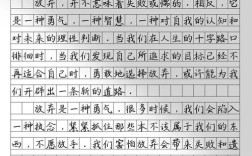 放弃，并不意味着失败或懦弱，相反，它
是一种勇气，一种智慧，一种对自我的认知和
对未来的理性判断，当我们在人生的十字路口
徘徊时，当我们发现自己所追求的目标已经不
再适合自己时，勇敢地选择放弃，或许能为我
们开辟出一条新的道路。
放弃是一种勇气。很多时候，我们会陷入
一种执念，紧紧抓住那些本不该属于我们的东
西，不愿放手，我们害怕放弃会带来失败和遗